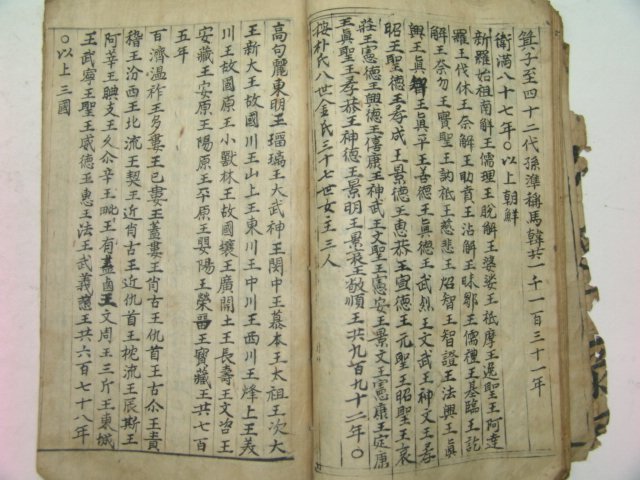 箕子至四十二代孫準稱馬韓共一千一百三十一年
衛滿八十七年○以上朝鮮
新羅始祖南解王儒理王脫解王婆娑王祗摩王逸聖王阿達
羅王伐休王奈解王助賁王沾解王味鄒王儒禮王基臨王訖
解王奈勿王實聖王訥祗王慈悲王炤智王智證王法興王眞
興王眞智王眞平王善德王眞德王武烈王文武王神文王孝
昭王聖德王孝成王景德王惠恭王宣德王元聖王昭聖王哀
莊王憲德王興德王僖康王神武王文聖王憲安王景文王憲康王定康
王眞聖王孝恭王神德王景明王景哀王敬順王共九百九十二年○
按朴氏八世金氏三十七世女主三人
高句麗東明王瑠璃王大武神王閔中王慕本王太祖王次大
王新大王故國川王山上王東川王中川王西川王烽上王美
川王故國原王小獸林王故國壤王廣開土王長壽王文咨王
安藏王安原王陽原王平原王嬰陽王榮留王寶藏王共七百
五年
百濟溫祚王多婁王己婁王蓋婁王肖古王仇首王古尒王責
稽王汾西王比流王契王近肖古王近仇首王枕流王辰斯王
阿莘王腆支王久尒辛王毗王有蓋鹵王文周王三斤王東城
王武寧王聖王威德王惠王法王武王義慈王共六百七十八年
○以上三國